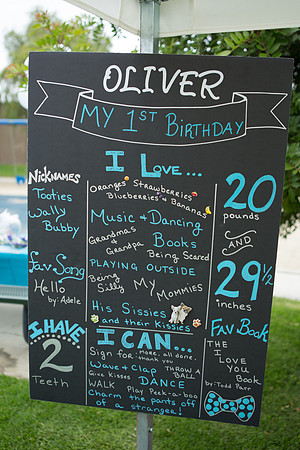 OLIVER
MY 1ST BIRTHDAY
NICKNAMES
Tooties
Wally
Bubby
Fav Song
Hello
by: Adele
I HAVE
2
Teeth
I LOVE...
Oranges Strawberries
Blueberries & Bananas
Music & Dancing
Grandma & Grandpa
Books
Being Scared
PLAYING OUTSIDE
Being Silly
My Mommies
His Sissies
and their Kisses
I CAN...
Sign for: more, all done, thank you
Wave & Clap THROW A BALL
Give Kisses DANCE
WALK Play Peek-a-boo
Charm the pants off
of a stranger!
20
pounds
AND
29 1/2
inches
FAV BOOK
THE
I
LOVE
YOU
Book
by: Todd Parr